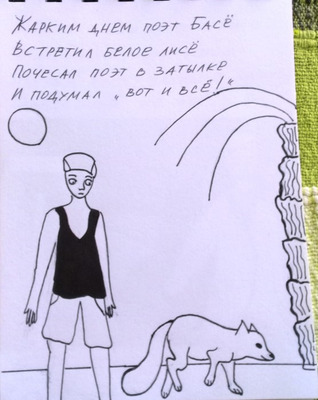 Жарким днем поэт Басё
Встретил белое лисё
Почесал поэт в затылке
И подумал „вот и всё!“